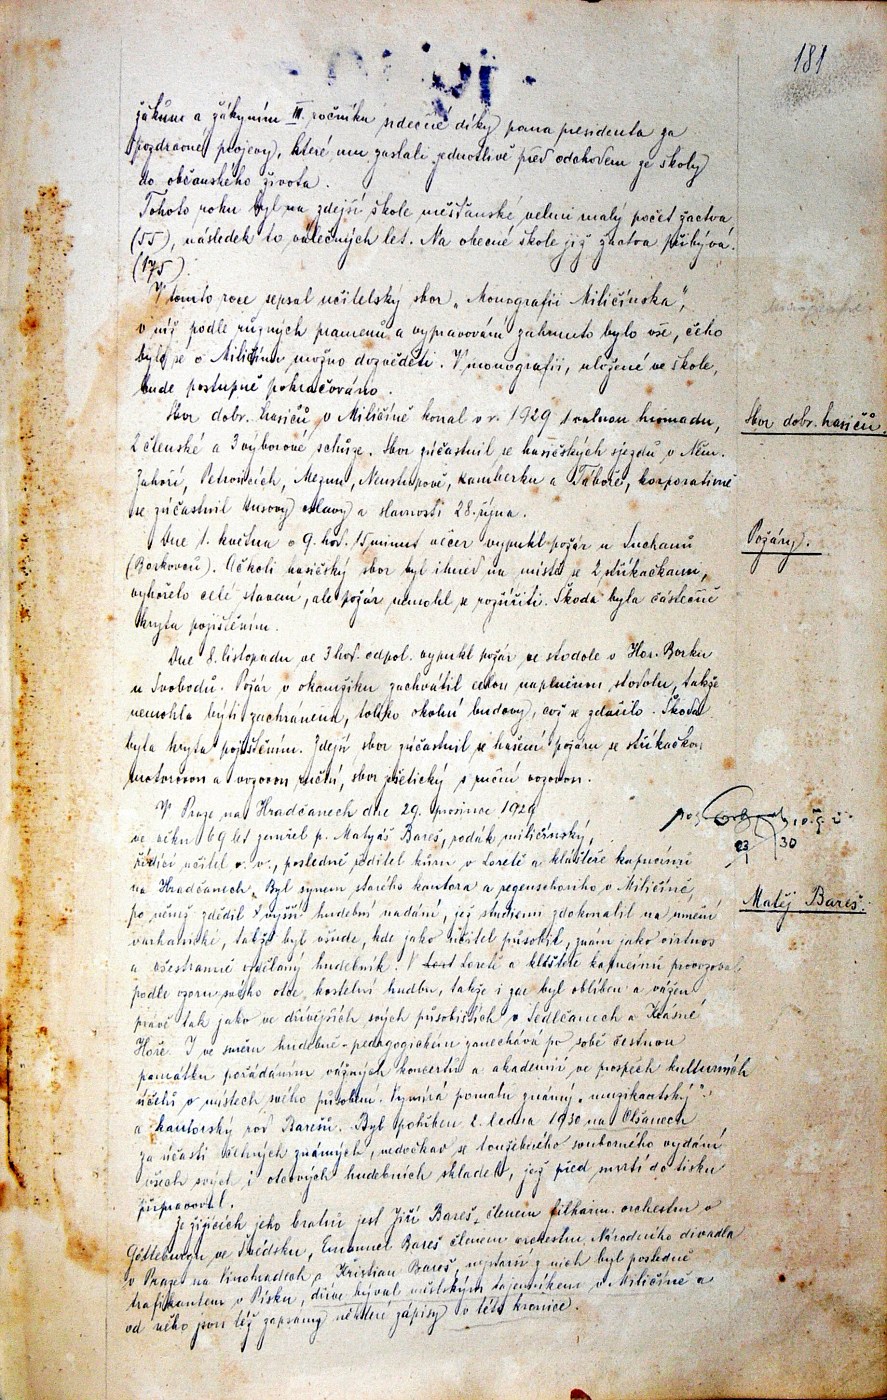 181
žákům a žákyním III. ročníku srdečné díky pana presidenta za
pozdravné projevy, které mu zaslali jednotlivě před odchodem ze školy
do občanského života.
Tohoto roku byl na zdejší škole měšťanské velmi malý počet žactva
(55), následek to válečných let. Na obecné škole již žactva přibývá.
(175).
V tomto roce sepsal učitelský sbor „Monografii Miličínska“,
v níž podle různých pramenů a vypravování zahrnuto bylo vše, čeho
bylo se o Miličínu možno dozvěděti. V monografii, uložené ve škole,
bude postupně pokračováno.
Sbor dobr. hasičů v Miličíně konal v r. 1929 1 valnou hromadu,
Sbor dobr. hasičů.
2 členské a 3 výborové schůze. Sbor zúčastnil se hasičských sjezdů v Něm.
Zahoří, Petrovicích, Mezně, Neustupově, Kamberku a Táboře, korporativně
se zúčastnil Husovy oslavy a slavnosti 28. října.
Dne 1. května o 9. hod. 15 minut večer vypukl požár u Suchanů
Požáry.
(Borkovců). Ačkoli hasičský sbor byl ihned na místě se 2 stříkačkami,
vyhořelo celé stavení, ale požár nemohl se rozšířiti. Škoda byla částečně
kryta pojištěním.
Dne 8. listopadu ve 3 hod. odpol. vypukl požár ve stodole v Hor. Borku
u Svobodů. Požár v okamžiku zachvátil celou naplněnou stodolu, takže
nemohla býti zachráněna, toliko okolní budovy, což se zdařilo. Škoda
byla kryta pojištěním. Zdejší sbor zúčastnil se hašení požáru se stříkačkou
motorovou a vozovou ruční, sbor zřetický s ruční vozovou.
V Praze na Hradčanech dne 29. prosince 1929
ve věku 69 let zemřel p. Matyáš Bareš, rodák miličínský,
23 30
řídící učitel v. v., posledně ředitel kůru v Loretě a klášteře kapucínů
na Hradčanech. Byl synem starého kantora a regenschoriho v Miličíně,
po němž zdědil vyšší hudební nadání, jež studiemi zdokonalil na umění
Matěj Bareš.
varhanické, takže byl všude, kde jako učitel působil, znám jako virtuos
a všestranně vzdělaný hudebník. V Loretě a klášteře kapucínů provozoval
podle vzoru svého otce kostelní hudbu, takže i zde byl oblíben a vážen
právě tak jako ve dřívějších svých působištích v Sedlčanech a Krásné
Hoře. I ve směru hudebně-pedagogickém zanechává po sobě čestnou
památku pořádáním vážných koncertů a akademií ve prospěch kulturních
účelů v místech svého působení. Vymírá pomalu známý „muzikantský“
a kantorský rod Barešů. Byl pohřben 2. ledna 1930 na Olšanech
za účasti četných známých, nedočkav se toužebného souborného vydání
všech svých i otcových hudebních skladeb, jež před smrtí do tisku
připravoval.
Ze žijících jeho bratrů jest Jiří Bareš členem filharm. orchestru v
Götteburgu ve Švédsku, Emanuel Bareš členem orchestru Národního divadla
v Praze na Vinohradech a Kristian Bareš, nejstarší z nich byl posledně
trafikantem v Písku, dříve býval městským tajemníkem v Miličíně a
od něho jsou též zapsány některé zápisy v této kronice.